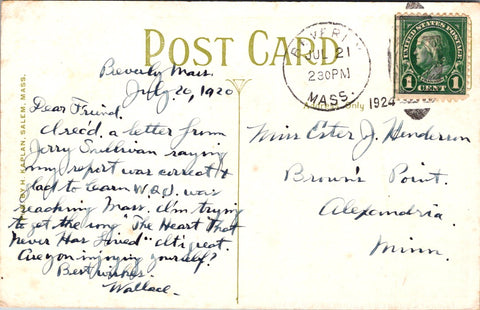 POST CARD
BEVERLY
JUL 21
2 30 PM
MASS.
1924
UNITED STATES POSTAGE
FRANKLIN
1 1
CENT
Only
H. KAPLAN, SALEM, MASS.
Beverly Mass.
July 20, 1920
Dear Friend.
I rec'd. a letter from
Jerry Sullivan saying
my report was correct &
glad to learn W.B.Z. was
reaching Mass. I'm trying
to get the song "The Heart That
Never Has Lived" it's great.
Are you injoying yourself?
Best wishes.
Wallace.
Miss Ester J. Henderson
Brown's Point.
Alexandria
Minn.